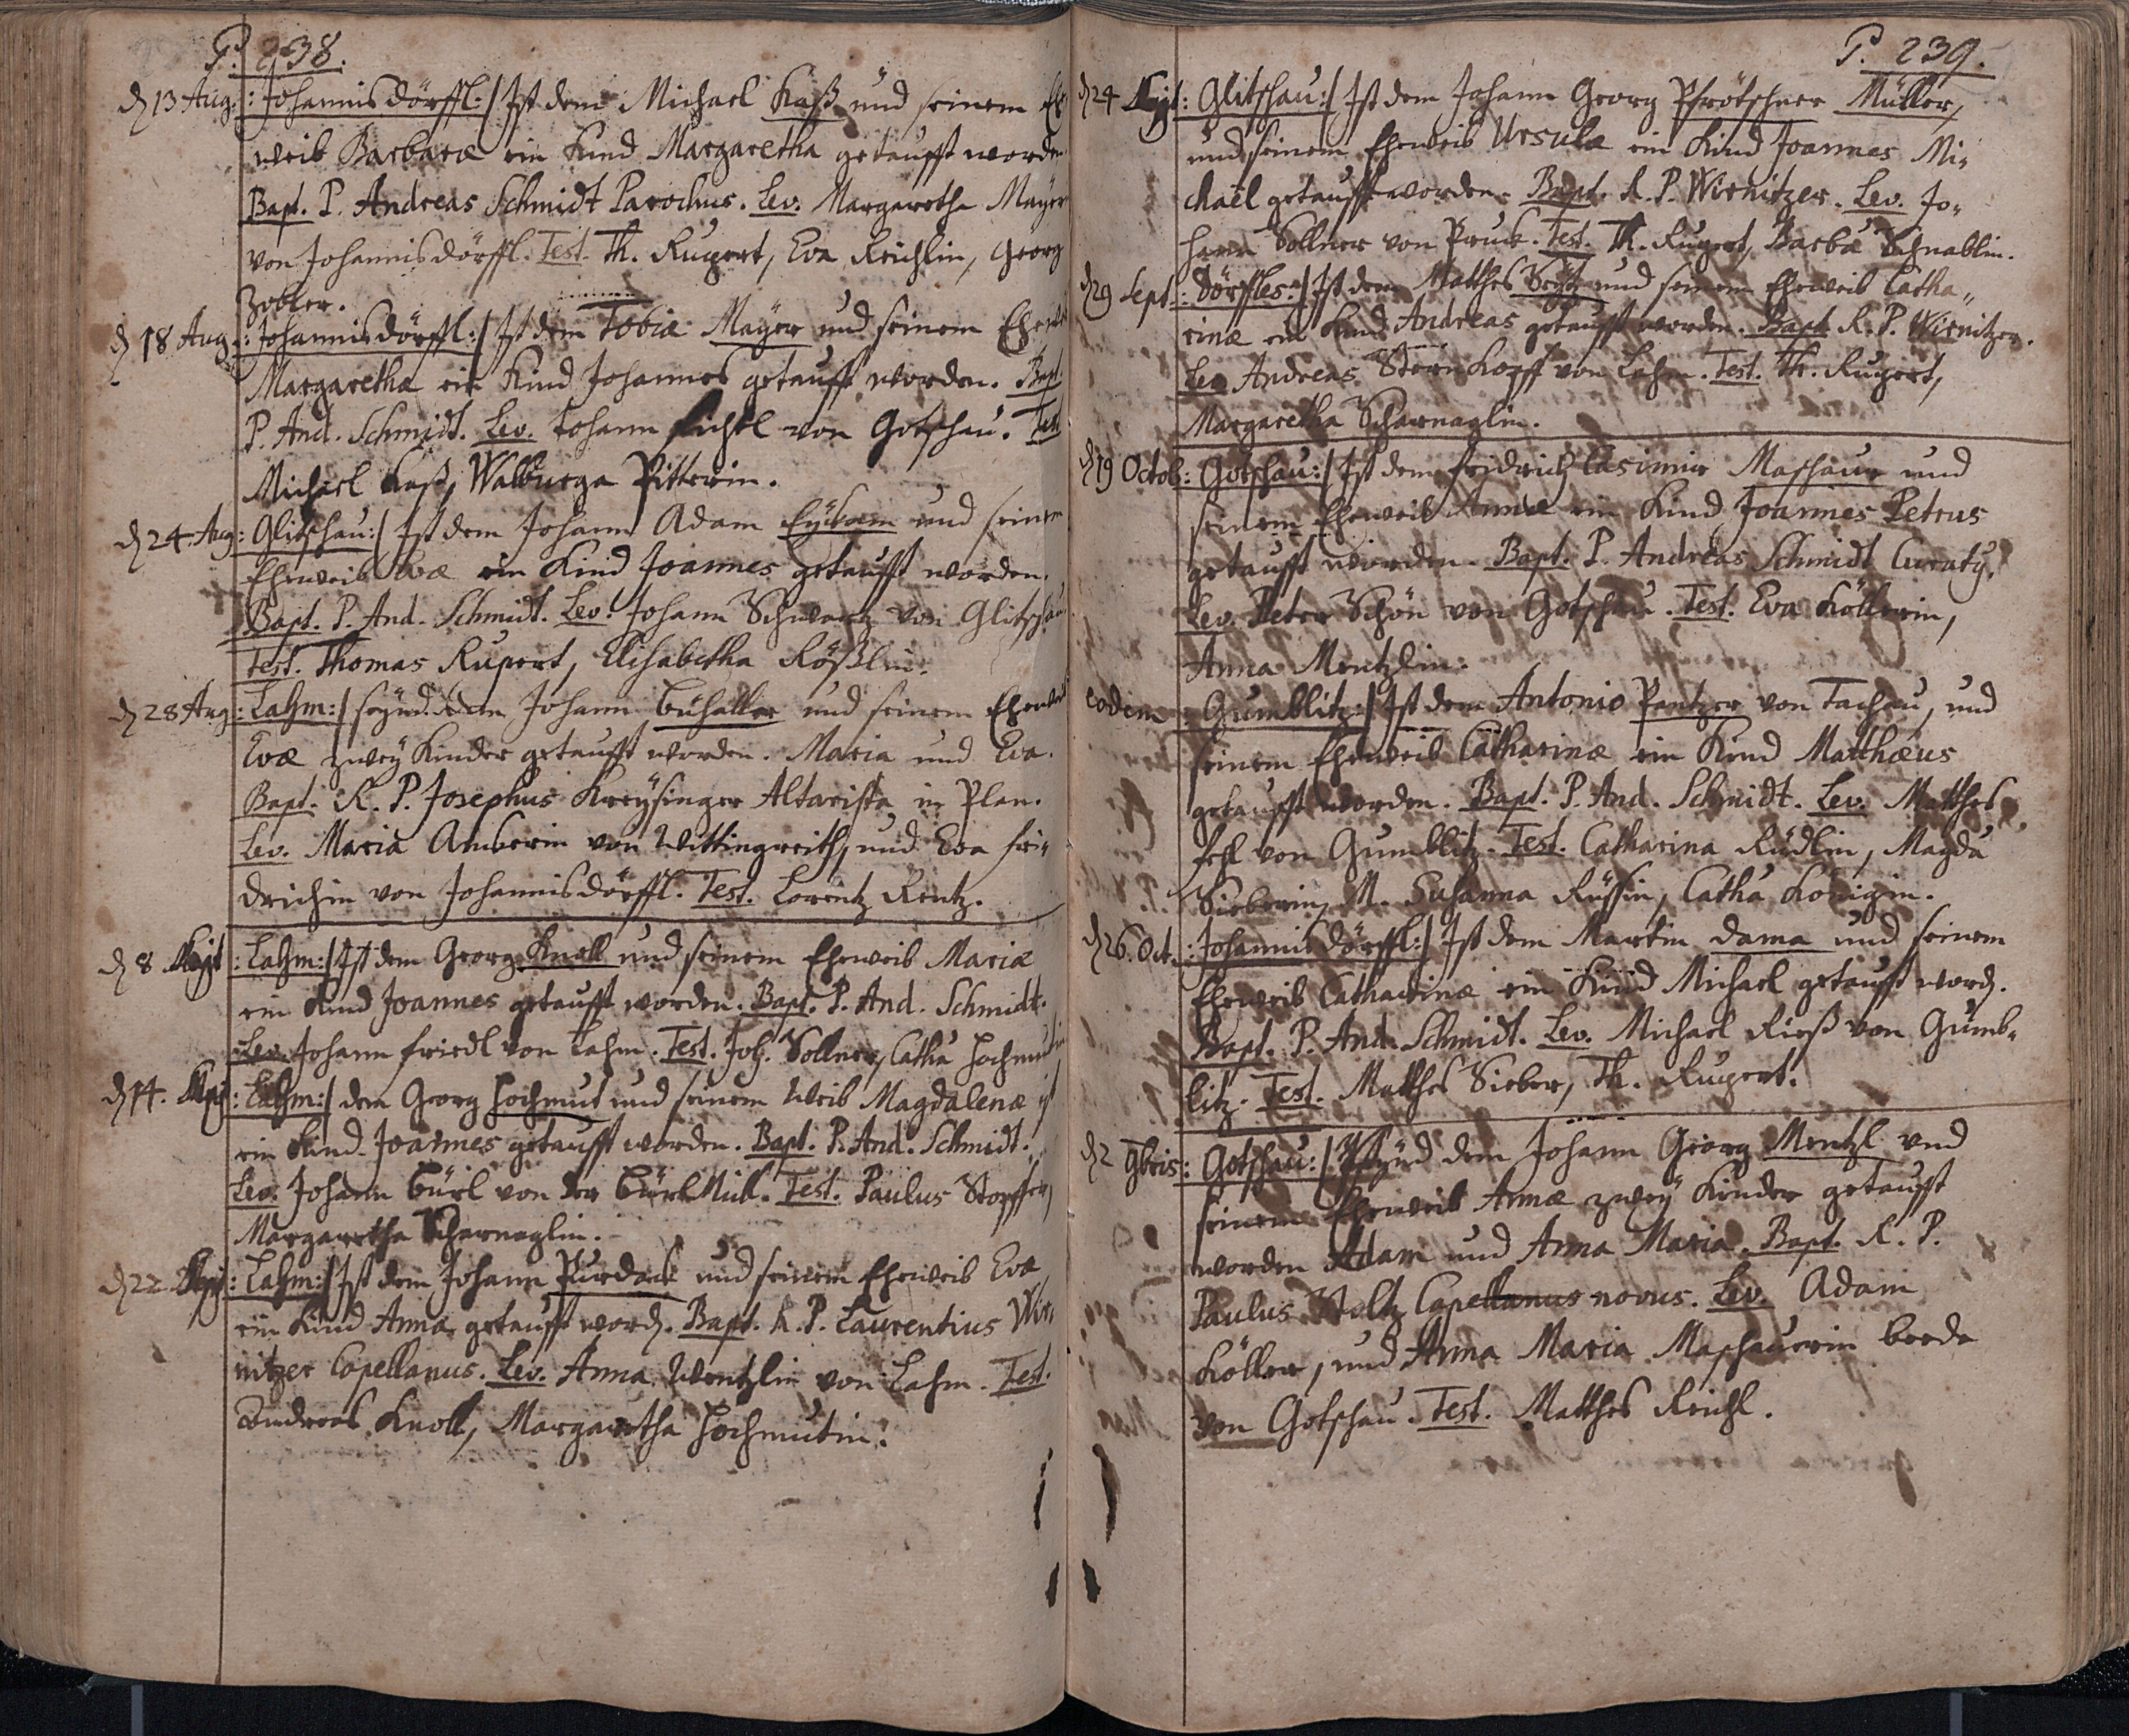 P. 238.
d 13 Aug. :Johannisdörffl:/ Ist dem Michael Kaß und seinem Eh
weib Barbaræ ein Kind Margaretha getaufft worden
Bapt. P. Andreas Schmidt Parochus. Lev. Margaretha Mayer
von Johannisdörffl. Test. Th. Rupert, Eva Reichlin, Georg
Zobler.
d 18 Aug. :Johannisdörffl:/ Ist dem Tobiæ Mayer und seinem Ehew
Margaretha ein Kind Johannes getaufft worden. Bapt.
P. And. Schmidt. Lev. Johann Fichtl von Gotschau. Test
Michael Kaß, Walburga Pitterin.
d 24. Aug :Glitschau:/ Ist dem Johann Adam und seinem
Eheweib Evæ ein Kind Joannes getaufft worden.
Bapt. P. And. Schmidt. Lev. Johann Schwartz von Glitschau
Test. Thomas Rupert, Elisabetha Rößlin.
d 28 Aug :Lahm:/ seynd dem Johann und seinem Eheweib
Evæ zwey Kinder getaufft worden. Maria und Eva.
Bapt. R. P. Josephus Kreysinger Altarista in Plan.
Lev. Maria von Wittingreith, und Eva Fri-
drichin von Johannisdörffl. Test. Lorentz Rentz.
d 8 Sept :Lahm:/ Ist dem Georg Knoll und seinem Eheweib Mariæ
ein Kind Joannes getaufft worden. Bapt. P. And. Schmidt.
Lev. Johann Friedl von Lahm. Test. Joh. Sollner, Catha Hochmutin
d 14. Sept :Lahm:/ dem Georg Hochmut und seinem Weib Magdalenæ ist
ein Kind Joannes getaufft worden. Bapt. P. And. Schmidt.
Lev. Johann Bürl von der Bürl Mül. Test. Paulus Stopffer,
Margaretha Scharnaglin.
d 22. Sept :Lahm:/ Ist dem Johann Purdack und seinem Eheweib Evæ
ein Kind Anna getaufft word. Bapt. R. P. Laurentius Wir-
nitzer Capellanus. Lev. Anna Wentzlin von Lahm. Test.
Andreas Knoll, Margaretha Hochmutin.
P. 239.
d 24 Sept :Glitschau:/ Ist dem Johann Georg Pfrötschner Müller,
und seinem Eheweib Ursulæ ein Kind Joannes Mi-
chaël getaufft worden. Bapt. R. P. Wirnitzer. Lev. Jo-
hann Sollner von Pruck. Test. Th. Rupert, Barba Schnablin.
d 29 Sept :Dörffles:/ Ist dem Matthes und seinem Eheweib Catha-
rinæ ein Kind Andreas getaufft worden. Bapt. R. P. Wirnitzer.
Lev. Andreas Sternkopff von Lahm. Test. Th. Rupert,
Margaretha Scharnaglin.
d 19 Octob :Gotschau:/ Ist dem Fridrich Casimir Maschaur und
seinem Eheweib Annæ ein Kind Joannes Petrus
getaufft worden. Bapt. P. Andreas Schmidt Curaty.
Lev. Peter Schön von Gotschau. Test. Eva Köllerin,
Anna Mentzlin.
eodem :Gumblitz:/ Ist dem Antonio Pantzer von Tachau, und
seinem Eheweib Catharinæ ein Kind Matthæus
getaufft worden. Bapt. P. And. Schmidt. Lev. Matthes
von Gumblitz. Test. Catharina Rüdlin, Magda
Sieberin, M. Susanna Rüssin, Catha Königin.
d 26. Oct. :Johannisdörffl:/ Ist dem Martin Dama und seinem
Eheweib Catharinæ ein Kind Michael getaufft word.
Bapt. P. And. Schmidt. Lev. Michael Rieß von Gumb-
litz. Test. Matthes Sieber, Th. Rupert.
d 2 9bris :Gotschau:/ seynd dem Johann Georg Mentzl und
seinem Eheweib Annæ zwey Kinder getaufft
worden Adam und Anna Maria. Bapt. R. P.
Paulus Stoltz Capellanus novus. Lev. Adam
Köller, und Anna Maria Maschauerin beede
von Gotschau. Test. Matthes Reichl.